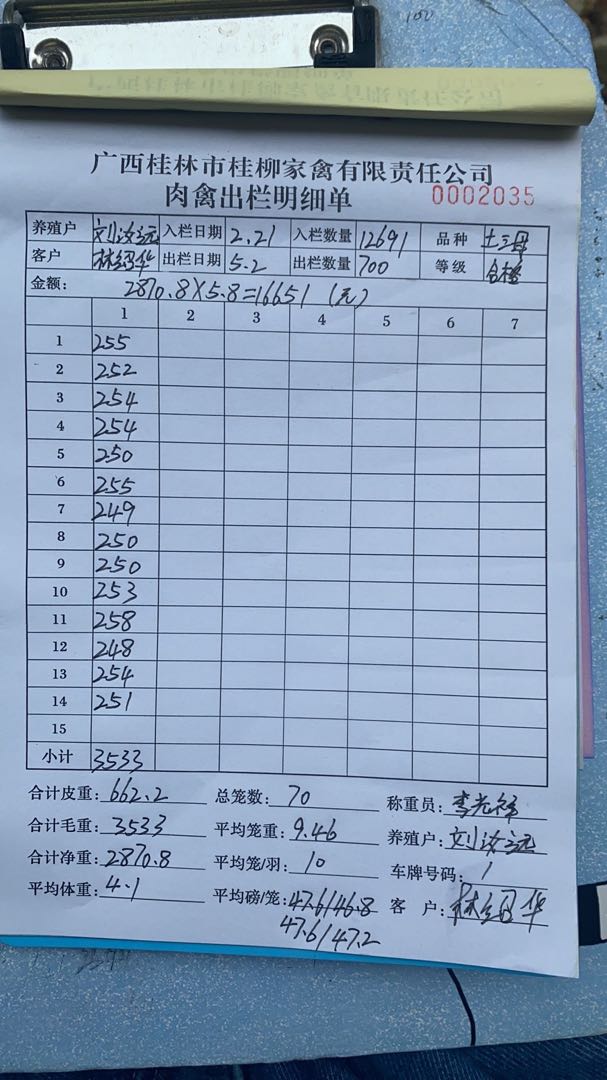 广西桂林市桂柳家禽有限责任公司
肉禽出栏明细单 0002035
养殖户 刘汝远 入栏日期 2.21 入栏数量 12691 品种 土三母
客户 林绍华 出栏日期 5.2 出栏数量 700 等级 合格
金额: 2870.8×5.8=16651 (元)
1 2 3 4 5 6 7
1 255
2 252
3 254
4 254
5 250
6 255
7 249
8 250
9 250
10 253
11 258
12 248
13 254
14 251
15
小计 3533
合计皮重: 662.2 总笼数: 70 称重员: 李光祥
合计毛重: 3533 平均笼重: 9.46 养殖户: 刘汝远
合计净重: 2870.8 平均笼/羽: 10 车牌号码: /
平均体重: 4.1 平均磅/笼: 47.6/46.8 客 户: 林绍华
47.6/47.2